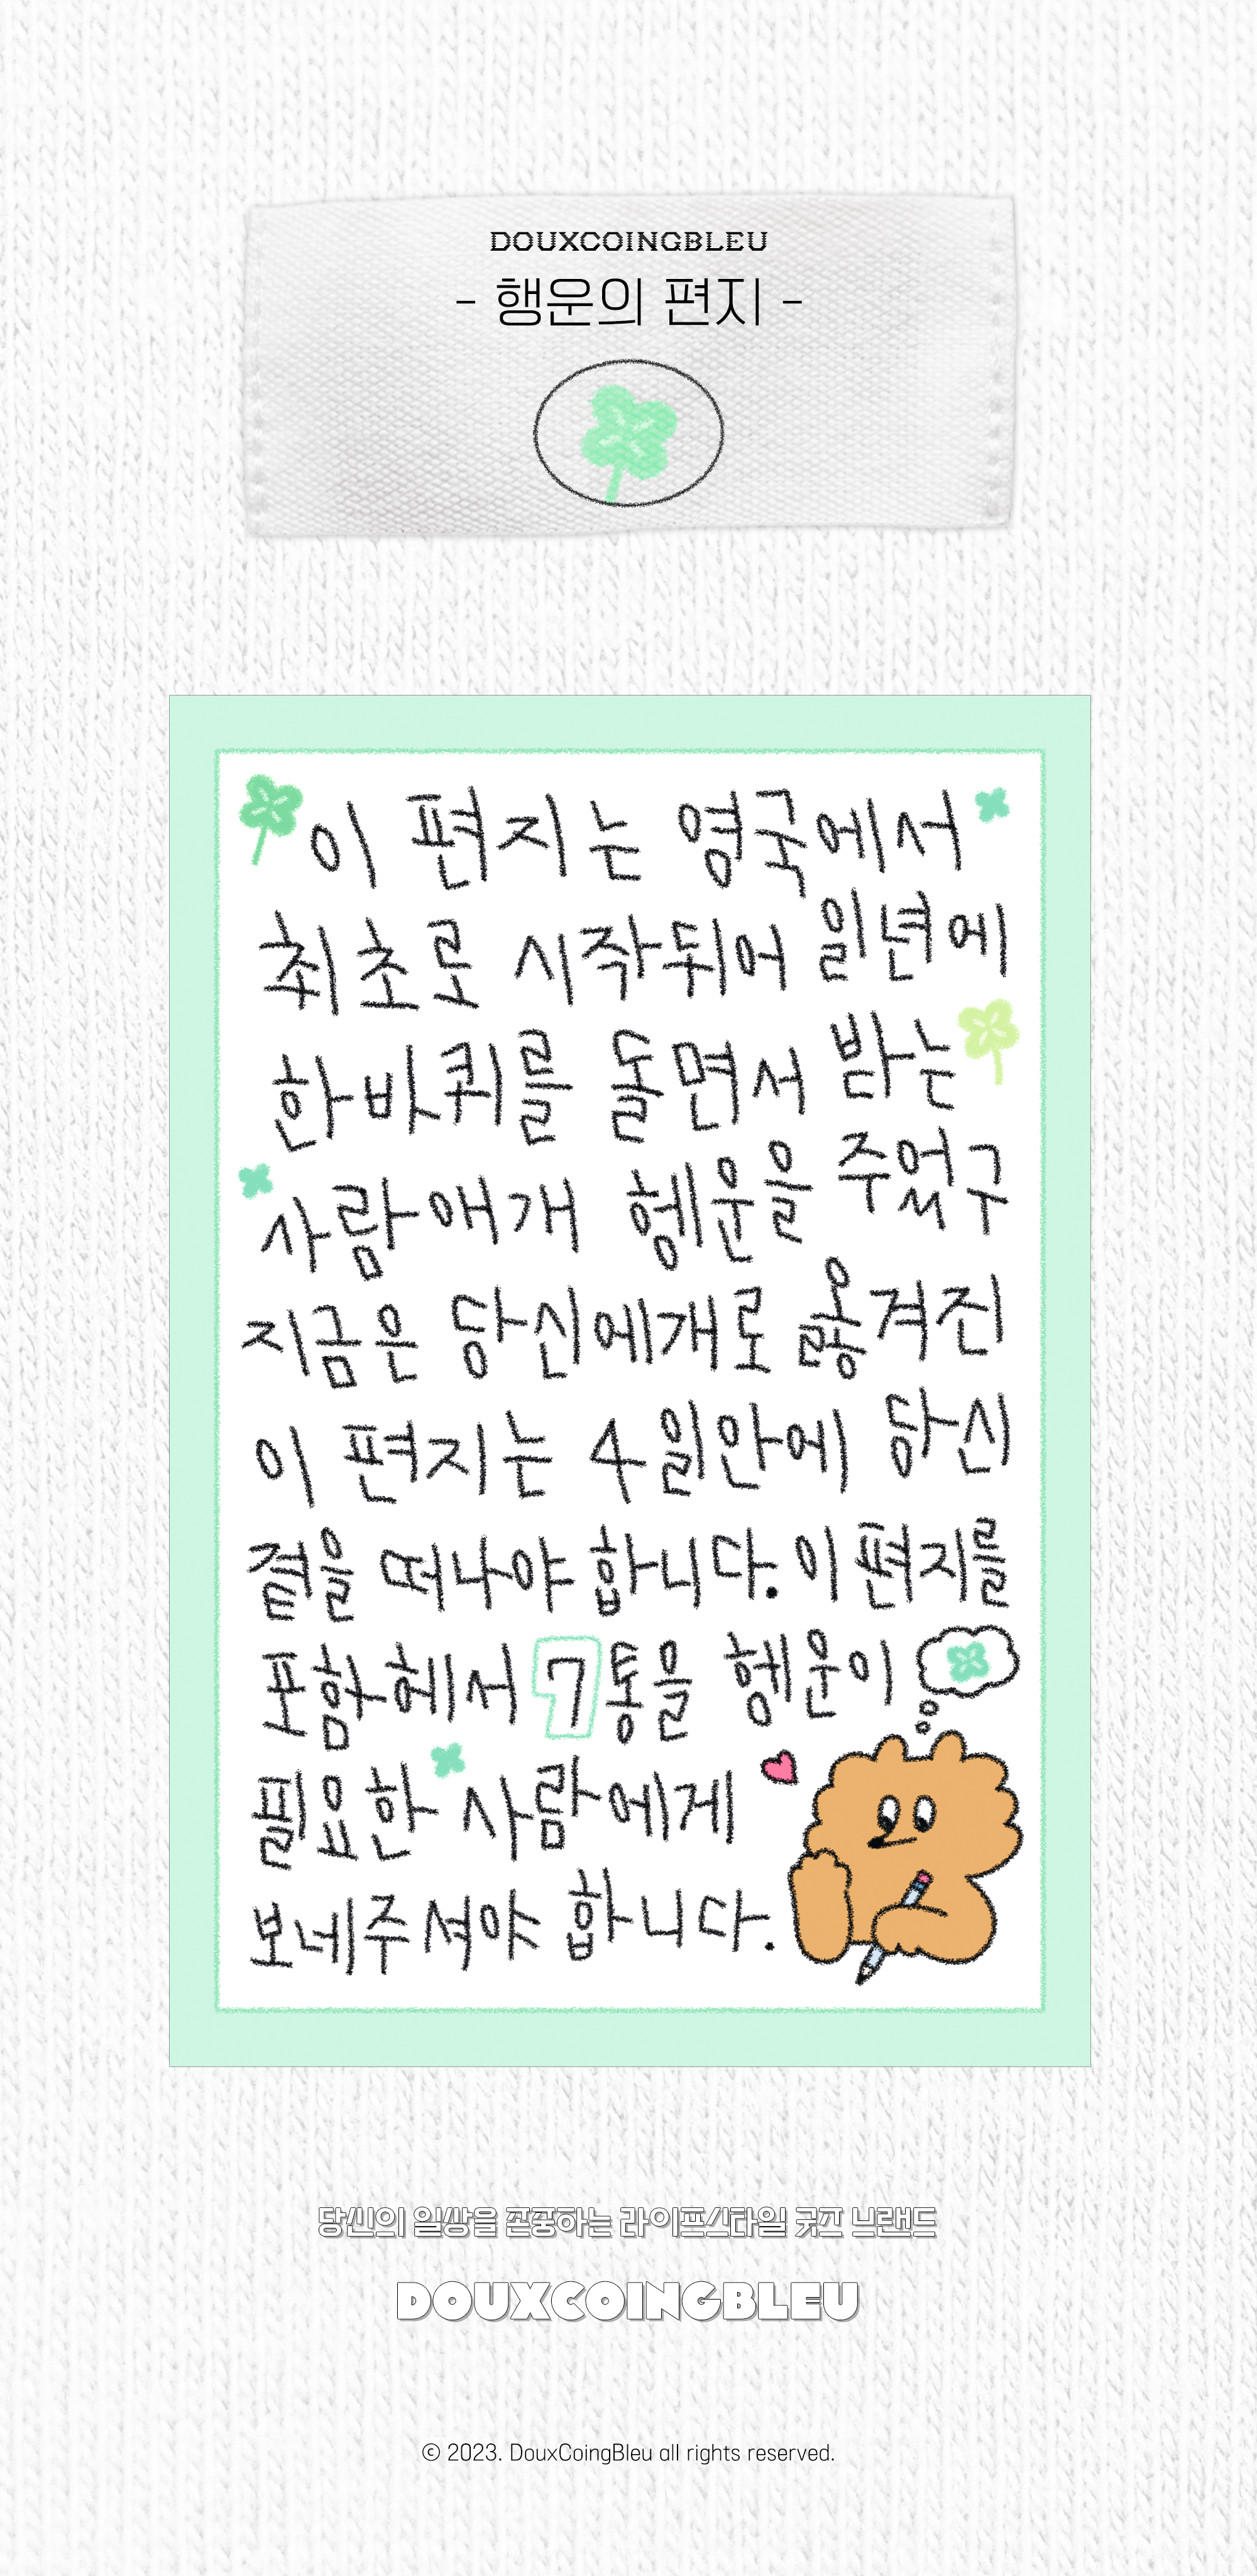 DOUXCOINGBLEU
- 행운의 편지 -
이 편지는 영국에서
최초로 시작뒤어 일년에
한바퀴를 돌면서 밤는
사람애개 헹운을 주었구
지금은 당신에개로 옯겨진
이 편지는 4일안에 당신
겹을 떠나야 합니다. 이 편지를
포함헤서 7통을 헹운이
필요한 사람에게
보네주셔야 합니다.
당신의 일상을 존중하는 라이프스타일 굿즈 브랜드
DOUXCOINGBLEU
© 2023. DouxCoingBleu all rights reserved.